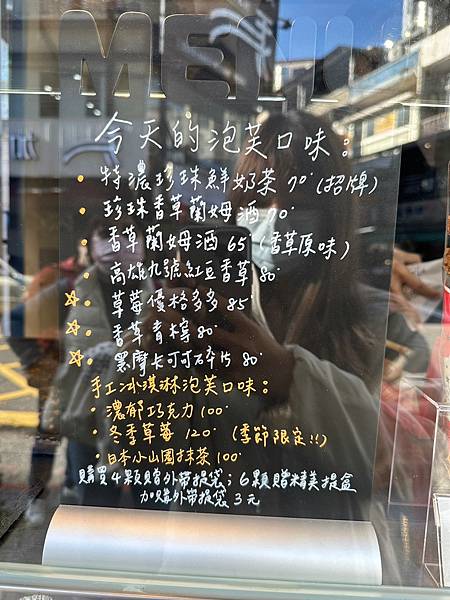 MENU
今天的泡芙口味：
• 特濃珍珠鮮奶茶 70.(招牌)
• 珍珠香草蘭姆酒 70.
• 香草蘭姆酒 65 (香草原味)
• 高雄九號紅豆香草 80.
☆• 草莓優格多多 85.
☆• 香草青檸 80.
☆• 黑摩卡可可碎片 80.
手工冰淇淋泡芙口味：
• 濃郁巧克力 100.
• 冬季草莓 120. (季節限定!!)
• 日本小山園抹茶 100.
購買4顆贈外帶提袋；6顆贈精美提盒
加購外帶提袋 3元